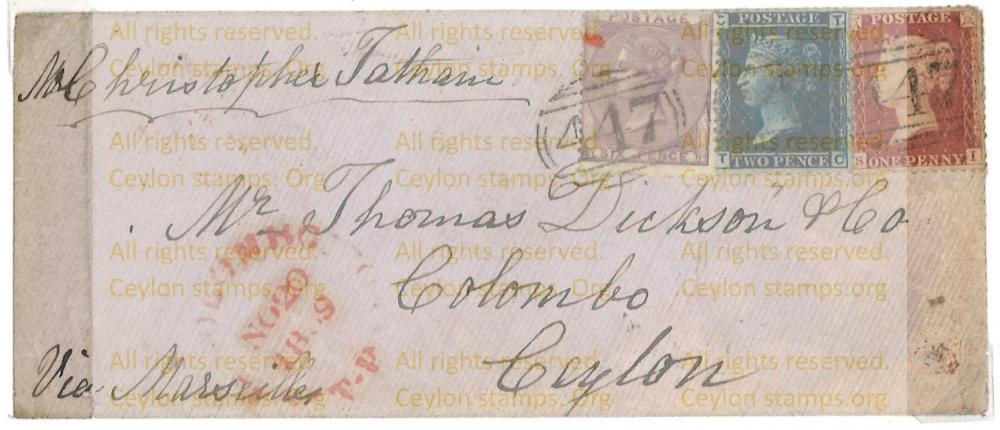 POSTAGE POSTAGE POSTAGE
Mr Christopher Tatham
447 447
SIX PENCE T TWO PENCE C S ONE PENNY I
Mr Thomas Dickson & Co
Colombo
Ceylon
Via Marseilles
All rights reserved. All rights reserved. All rights reserved.
Ceylon stamps. Org Ceylon stamps. Org Ceylon stamps. Org
All rights reserved. All rights reserved. All rights reserved.
Ceylon stamps. Org Ceylon stamps. Org Ceylon stamps. Org
All rights reserved. All rights reserved. All rights reserved.
Ceylon stamps. Org Ceylon stamps. Org Ceylon stamps. Org
All rights reserved. All rights reserved. All rights reserved.
Ceylon stamps. Org Ceylon stamps. Org Ceylon stamps. Org